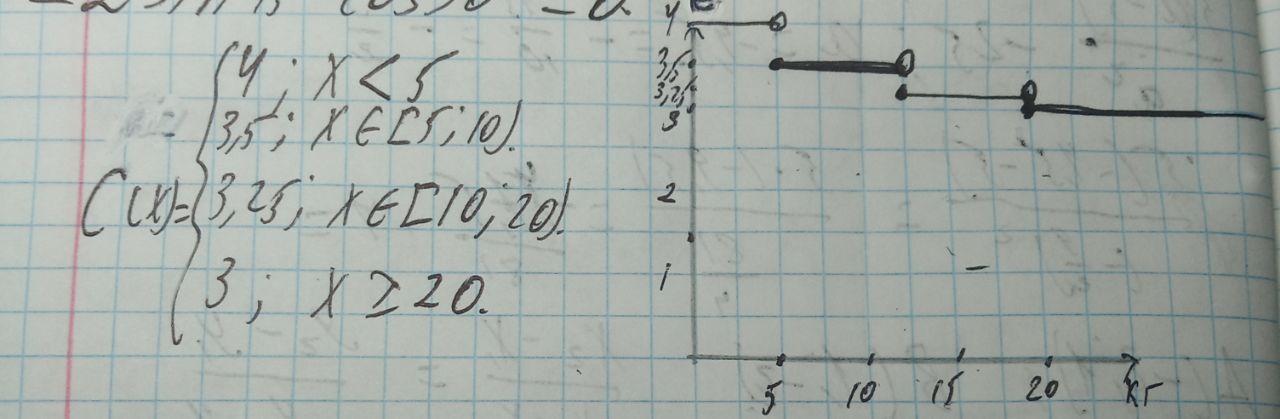 4; x < 5
3,5; x ∈ [5; 10).
C(x) = 3,25; x ∈ [10; 20).
3; x ≥ 20.
4
3,5
3,25
3
2
1
5 10 15 20 кг